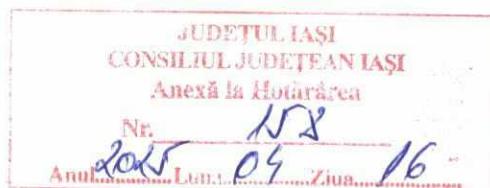 JUDEŢUL IAŞI
CONSILIUL JUDEŢEAN IAŞI
Anexă la Hotărârea
Nr. 158
Anul 2025 Luna 04 Ziua 16